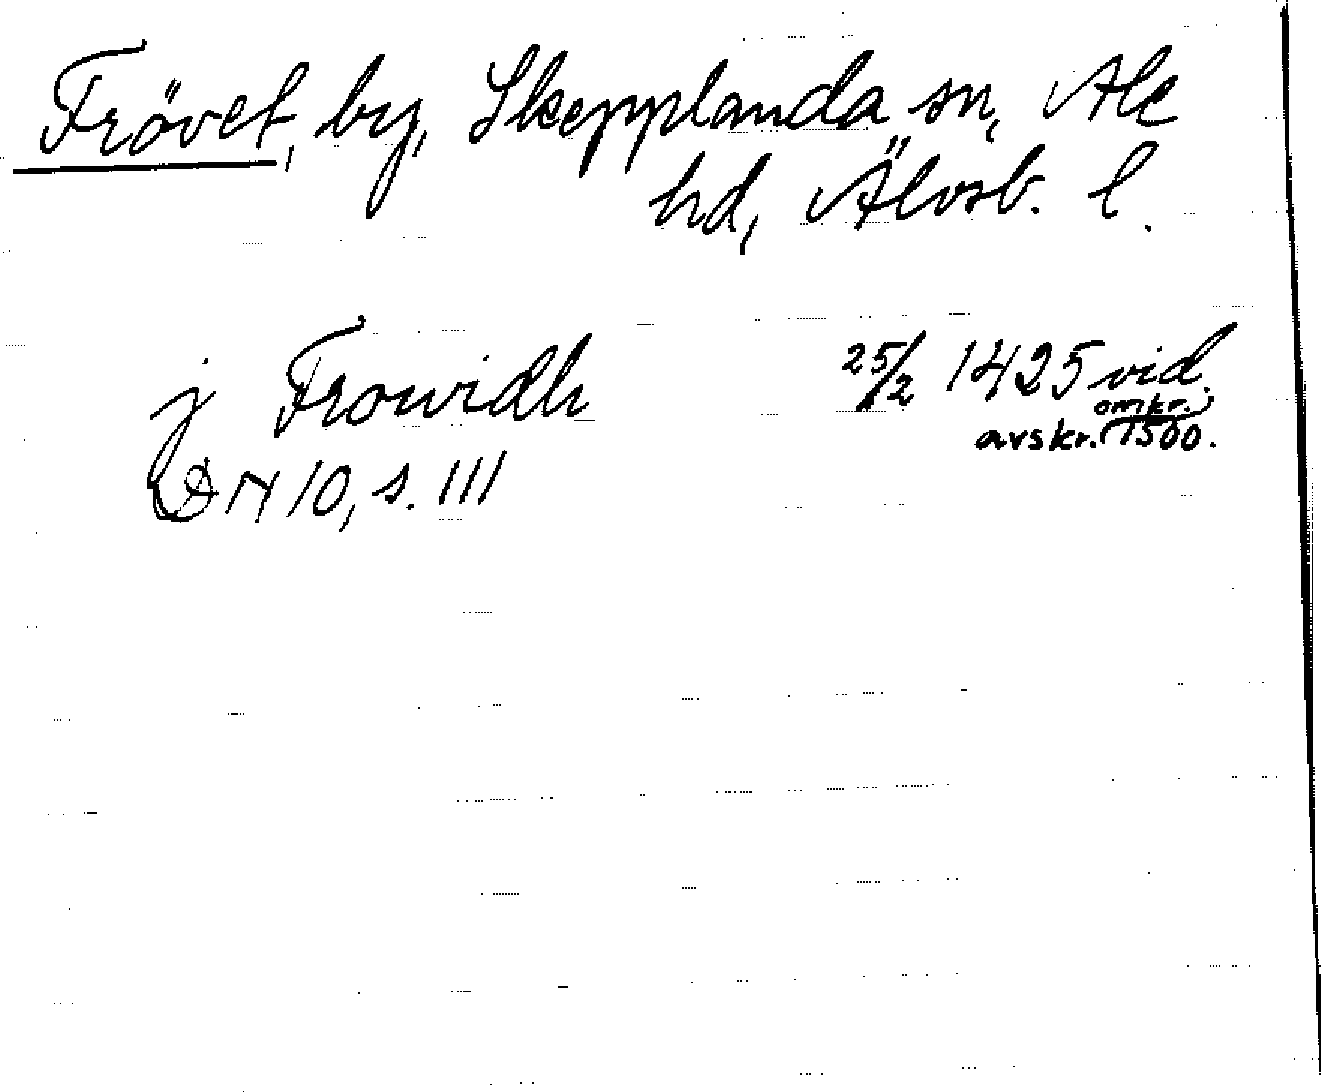 Frövet, by, Skepplanda sn, Ale
hd, Älvsb. l.
j Frowidh 25/2 1425 vid.
avskr. (omkr.) 1500.
DN 10, s. 111